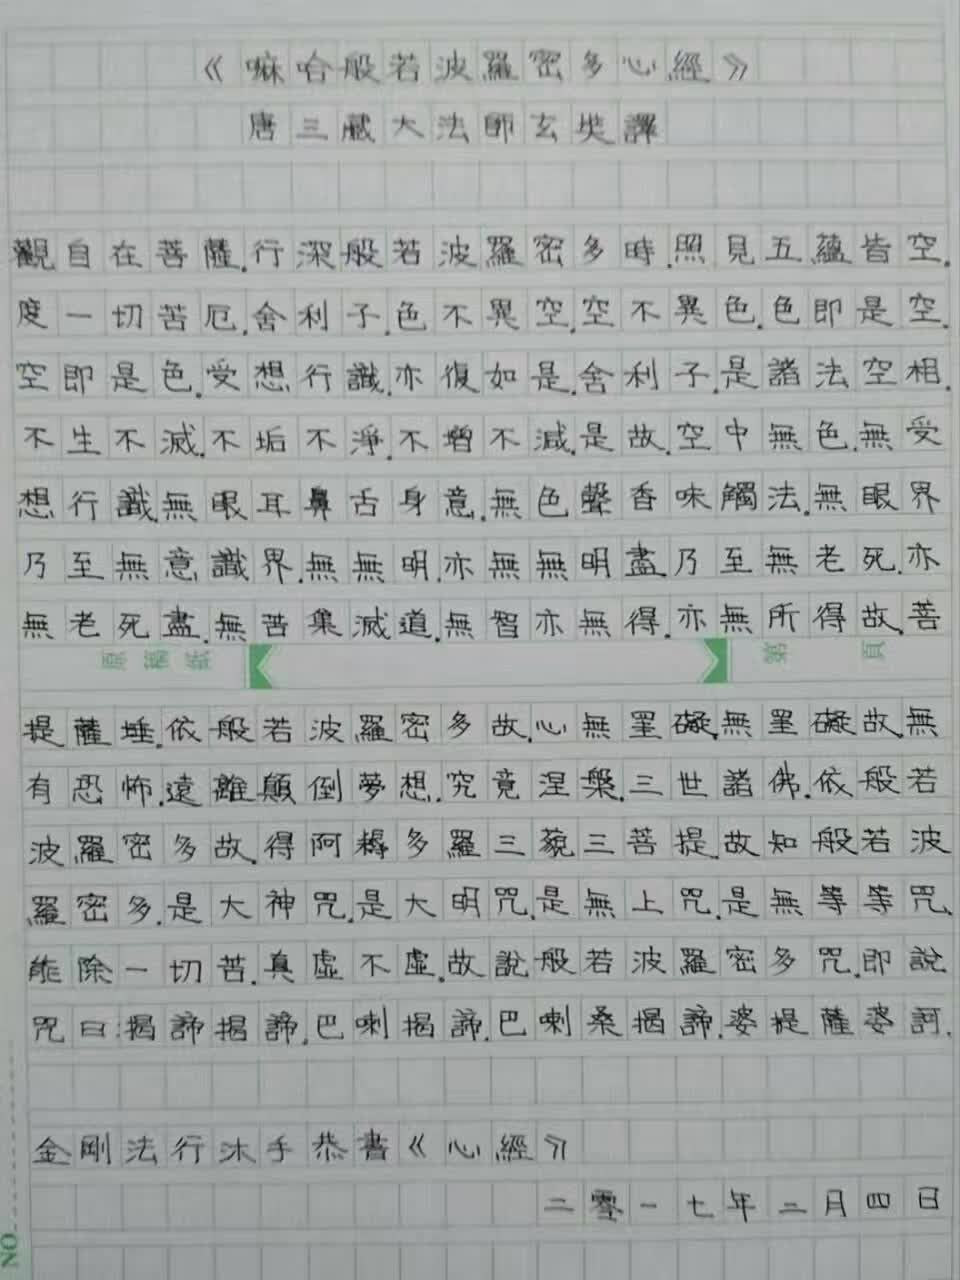 《嘛哈般若波羅密多心經》
唐三藏大法師玄奘譯
觀自在菩薩.行深般若波羅密多時.照見五蘊皆空.
度一切苦厄.舍利子.色不異空.空不異色.色即是空.
空即是色.受想行識.亦復如是.舍利子.是諸法空相.
不生不滅.不垢不淨.不增不減.是故.空中無色.無受
想行識.無眼耳鼻舌身意.無色聲香味觸法.無眼界
乃至無意識界.無無明.亦無無明盡乃至無老死.亦
無老死盡.無苦集滅道.無智亦無得.亦無所得故.菩
原稿紙 第 頁
提薩埵.依般若波羅密多故.心無罣礙.無罣礙故.無
有恐怖.遠離顛倒夢想.究竟涅槃.三世諸佛.依般若
波羅密多故.得阿耨多羅三藐三菩提.故知般若波
羅密多.是大神咒.是大明咒.是無上咒.是無等等咒.
能除一切苦.真虛不虛.故說般若波羅密多咒.即說
咒曰:揭諦揭諦.巴喇揭諦.巴喇桑揭諦.婆提薩婆訶.
金剛法行沐手恭書《心經》
二零一七年二月四日
NO